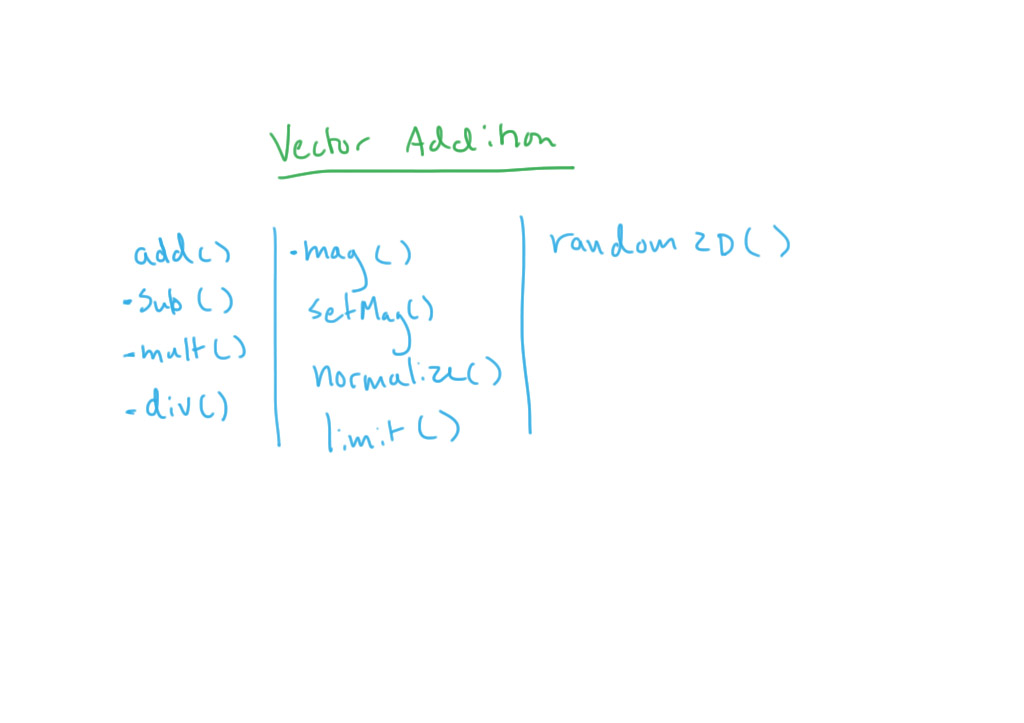 Vector Addition
add()
-sub()
-mult()
-div()
-mag()
setMag()
normalize()
limit()
random2D()